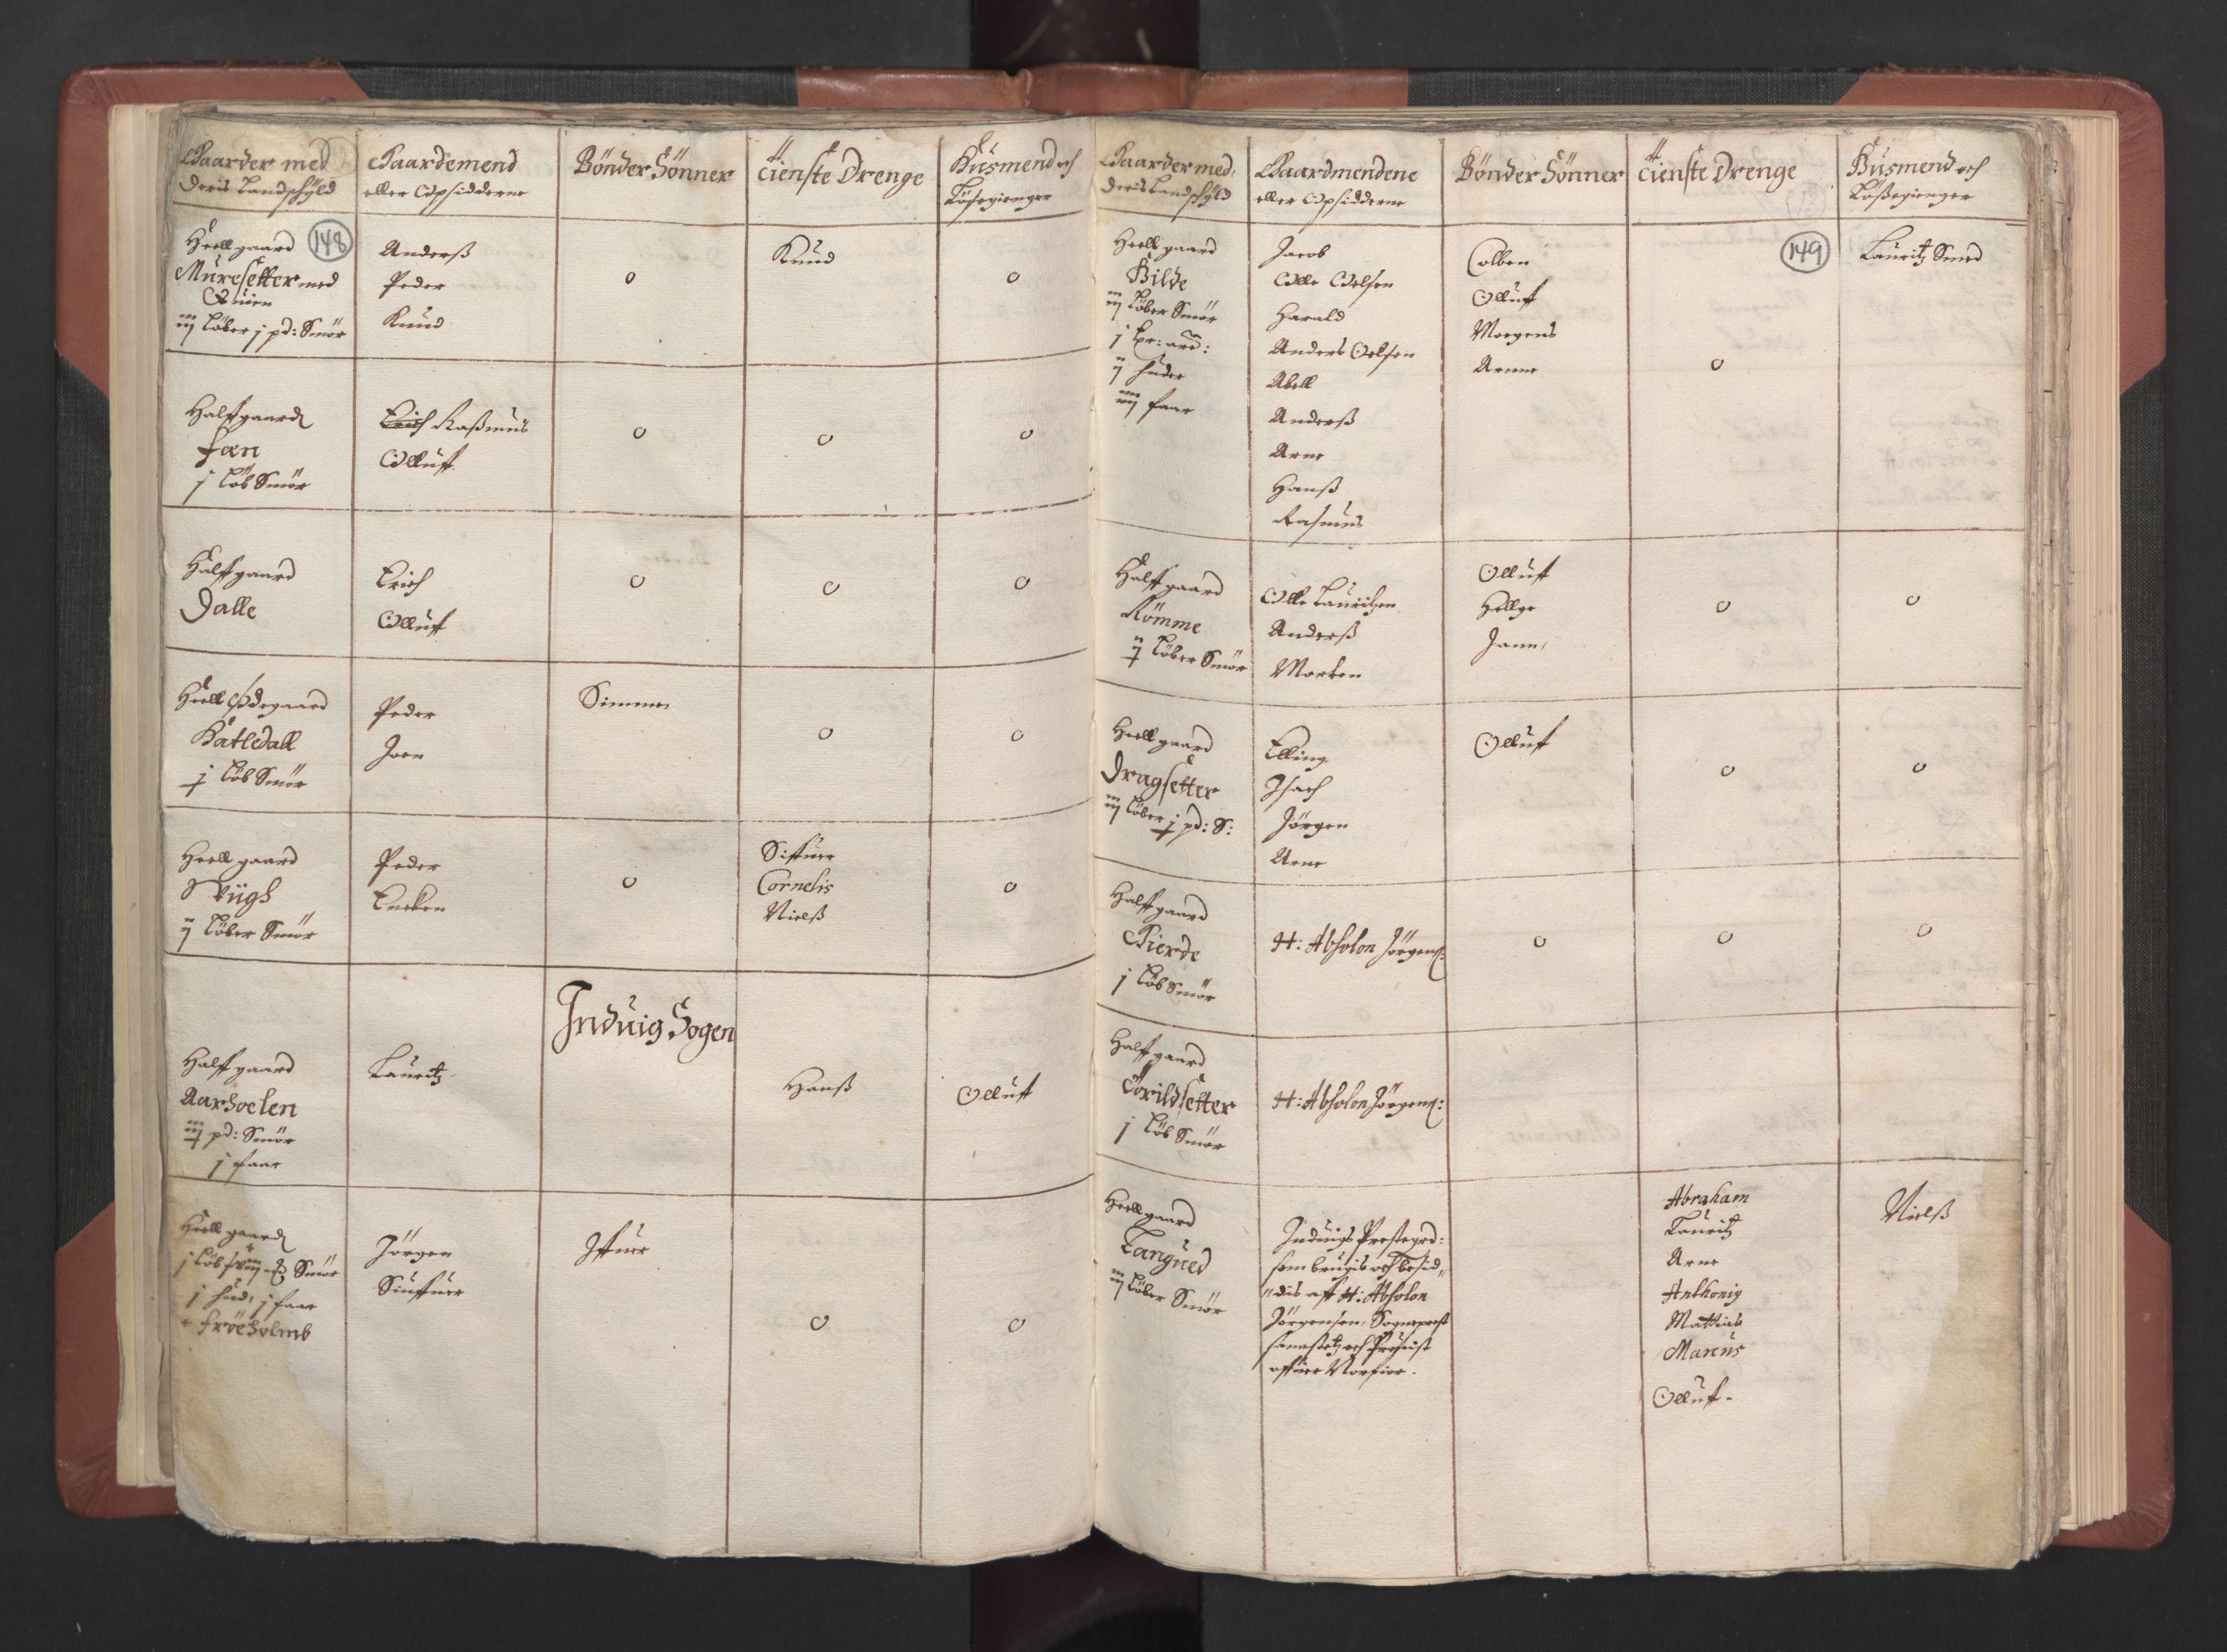 Gaarder med
deris Landschyld
Gaardemend
eller Opsidderne
Bönder Sönner
Tienste Drenge
Husmend och
Lösegienger
148
Heell gaard
Muresetter med
Øuien
iij Löber j pd: Smör
Anderß
Peder
Knud
o
Knud
o
Halff gaard
Fæn
j Löb Smör
Erich Raßmus
Olluff
o
o
o
Halff gaard
Dalle
Erich
Olluff
o
o
o
Heell Ødegaard
Batledall
j Löb Smör
Peder
Joen
Simmen
o
o
Heell gaard
Ryigh
ij Löber Smör
Peder
o
Siffuer
Cornelis
Nielß
o
Induig Sogen
Halff gaard
Aarhoelen
iij pd: Smör
j faar
Lauritz
Hanß
Olluff
Heell gaard
j Löb Smör
j hud, j faar
+ Fröeholmb
Jörgen
Siuffuer
Iffuer
o
o
Gaarder med
deris Landschyld
Gaardmendene
eller Opsidderne
Bönder Sönner
Tienste Drenge
Husmend och
Lößegienger
149
Heell gaard
Bilde
iij Löber Smör
ij huder
faar
Jacob
Olle Oelsen
Harald
Anders Oelsen
Abell
Anderß
Arne
Hanß
Rasmus
Colben
Olluff
Mogens
Arne
o
Lauritz Smed
Halff gaard
Römme
ij Löber Smör
Olle Lauritzen
Anderß
Morten
Olluff
Hellge
Jann
o
o
Heell gaard
Dragsetter
iij Löber j pd: S:
Elling
Isach
Jörgen
Arne
Olluff
o
o
Halff gaard
Gierde
j Löb Smör
H: Absolon Jörgens:
o
o
o
Halff gaard
Torildsetter
j Löb Smör
H: Absolon Jörgens:
Heell gaard
Tangued
iij Löber Smör
Induigs Prestegrd:
som brugis och besid„
„dis aff H: Absolon
Jörgensen, Sogneprest
sammestetz och Prouist
offuer Norfior.
Abraham
Lauritz
Arne
Anthonig
Mattias
Marcus
Olluf.
Nielß